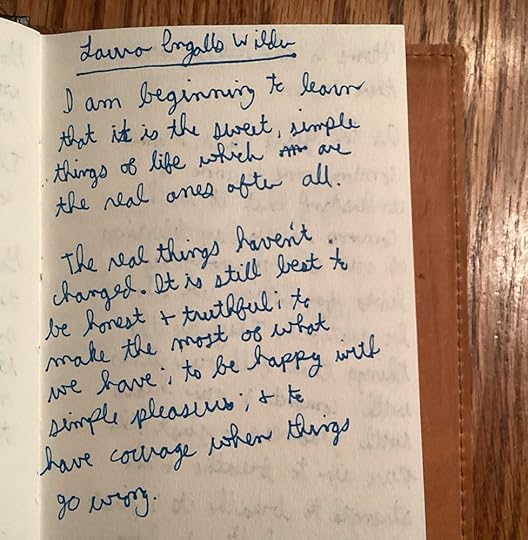 Laura Ingalls Wilder
I am beginning to learn
that it is the sweet, simple
things of life which are
the real ones after all.
The real things haven't
changed. It is still best to
be honest + truthful; to
make the most of what
we have; to be happy with
simple pleasures; + to
have courage when things
go wrong.